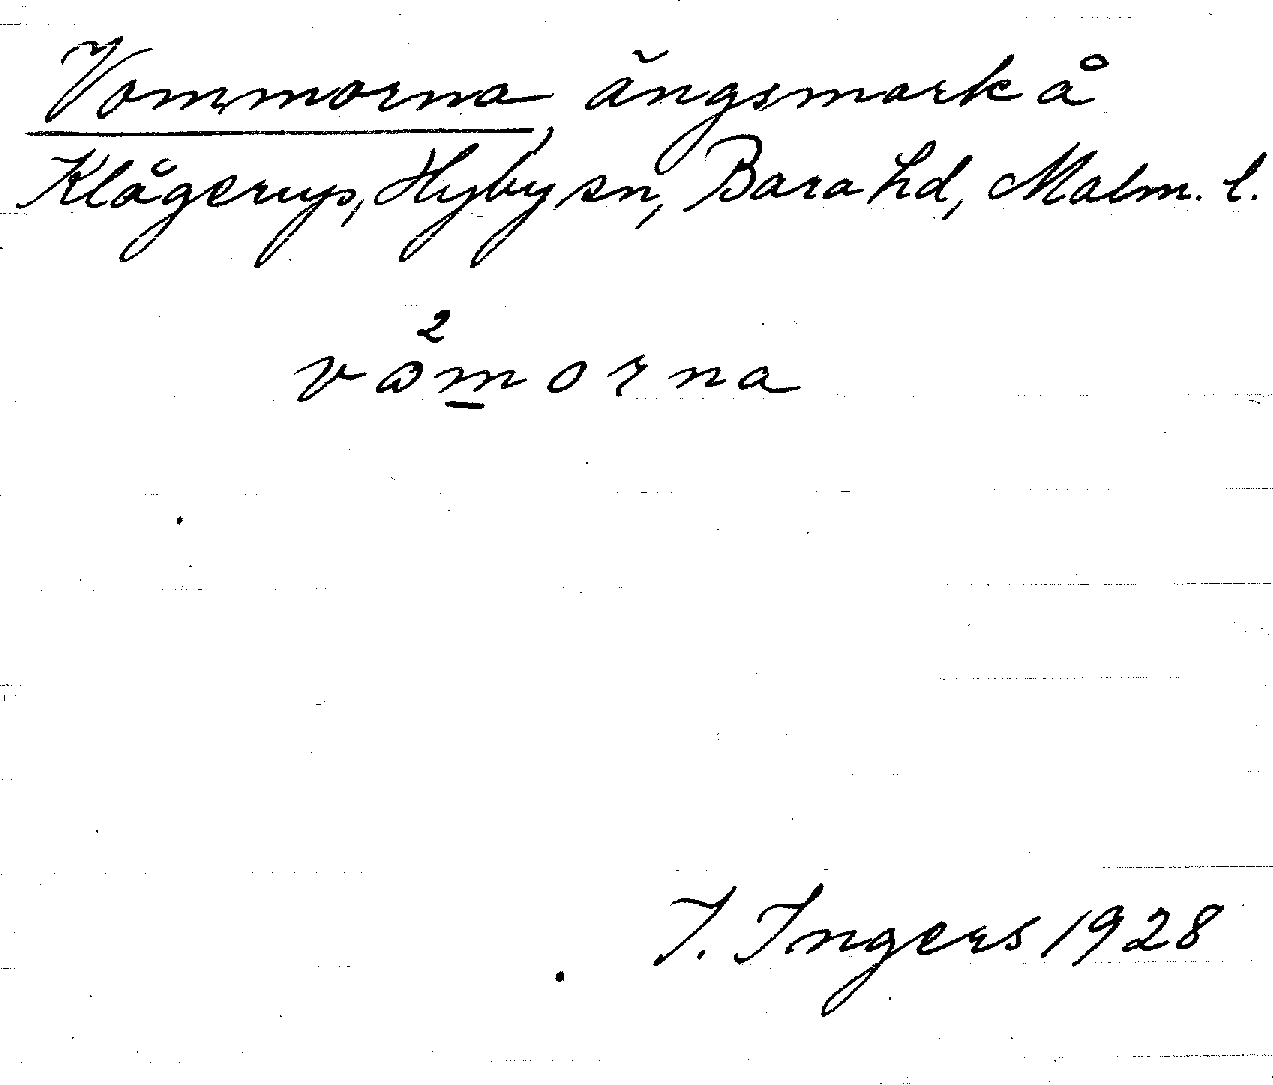 Vommorna, ängsmark å
Klågerup, Hyby sn, Bara hd, Malm. l.
vå²morna
I. Ingers 1928